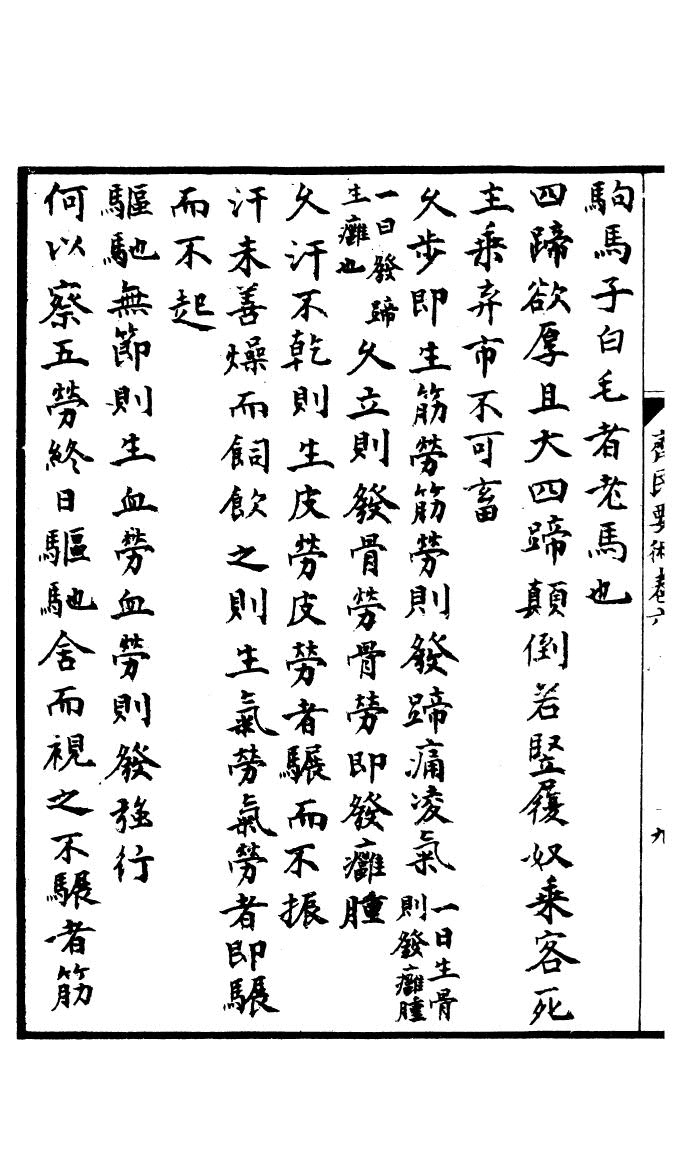 駒馬子白毛者老馬也
四蹄欲厚且大四蹄顛倒若竪履奴乗客死
主乗弃市不可畜
久步即生筋勞筋勞則發蹄痛凌氣一曰生骨則發癰腫
一曰發蹄生癰也久立則發骨勞骨勞即發癰腫
久汗不乾則生皮勞皮勞者驏而不振
汗未善燥而飼飲之則生氣勞氣勞者即驏
而不起
驅馳無節則生血勞血勞則發强行
何以察五勞終日驅馳舍而視之不驏者筋
齊民要術卷六
九